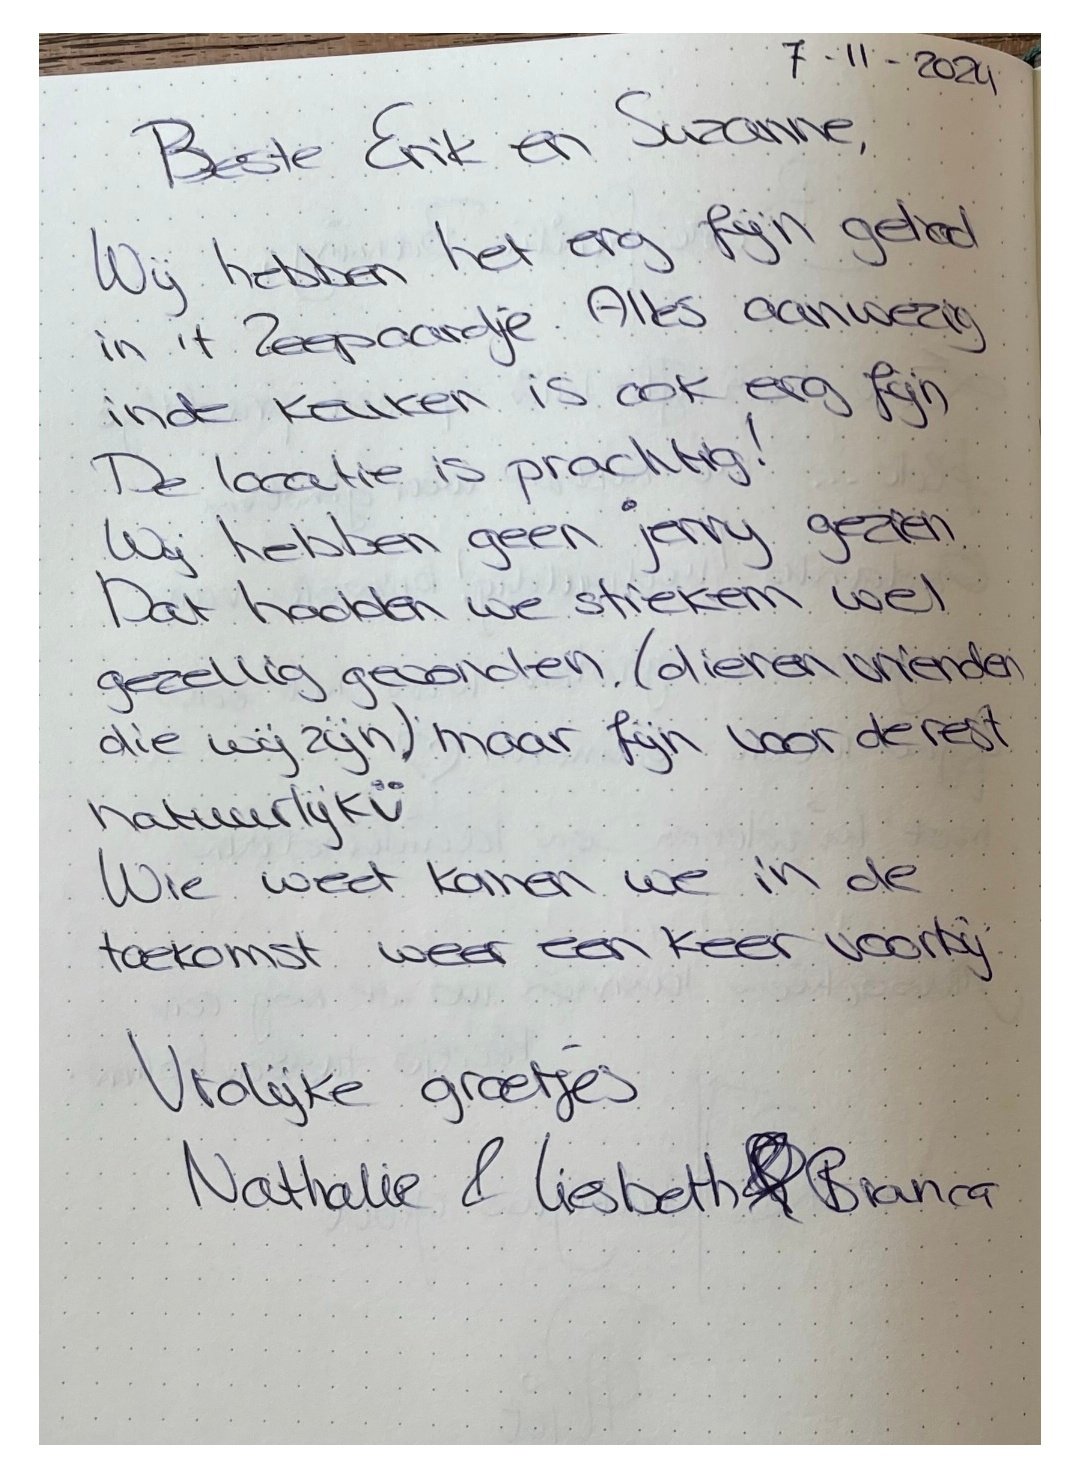 7-11-2024
Beste Erik en Suzanne,
Wij hebben het erg fijn gehad
in 't Zeepaardje. Alles aanwezig
in de keuken is ook erg fijn
De locatie is prachtig!
Wij hebben geen jerry gezien.
Dat hadden we stiekem wel
gezellig gevonden. (dieren vrienden
die wij zijn) maar fijn voor de rest
natuurlijk ü
Wie weet komen we in de
toekomst weer een keer voorbij
Vrolijke groetjes
Nathalie & Liesbeth & Bianca